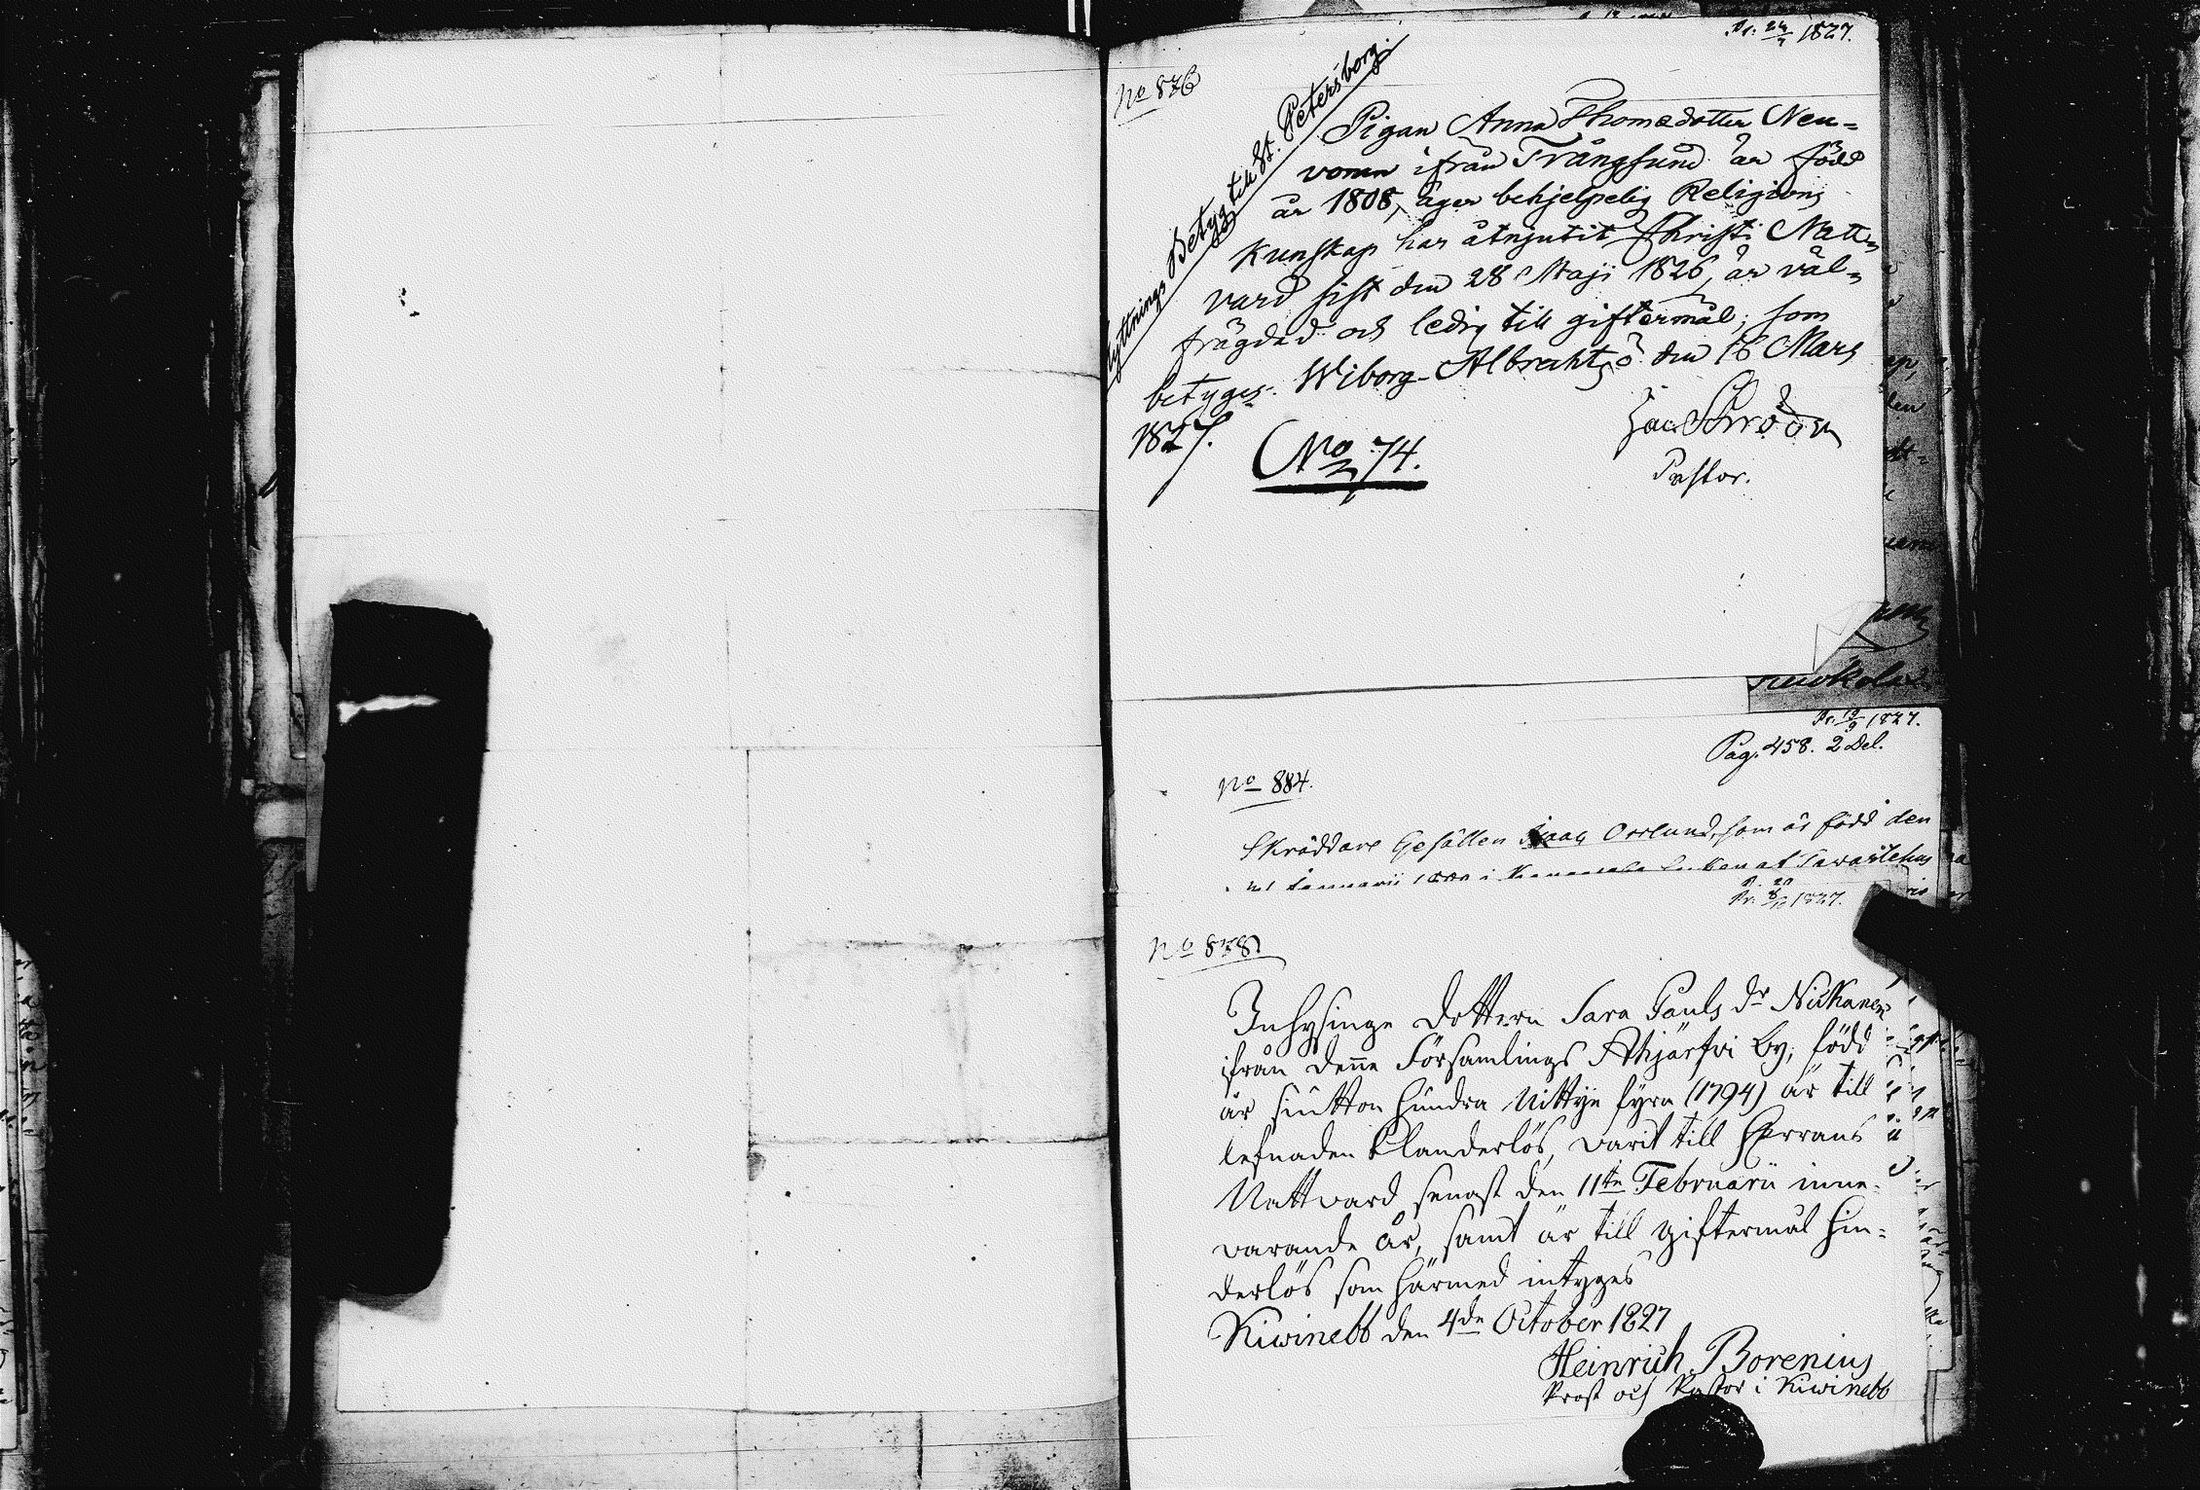 Pr. 24/9 1827.
No 876
Flyttnings Betyg till St. Petersborg.
Pigan Anna Thomedotter Neu=
vonen ifrån Trångsund är född
år 1808, äger behjelpelig Religions
Kunskap har åtnjutit Christi Natt=
vard sist den 28 Maji 1826, är väl=
frägdad och ledig till giftermål; som
betyges. Wiborg-Albrechtsö den 16 Mars
1827.
No 74.
Jac. Schröder
Pastor.
Pr. 19/9 1827.
Pag. 458. 2 Del.
No 884.
Skräddare Gesällen Isaac Osslund, som är född den
Januarii i af Tawastehus
Pr. 1827.
No 878
Inhysinge Dottern Sara Pauls dr Nickanen
ifrån denne Församlings Ahjärfvi by, född
år siutton hundra Nittije fyra (1794) är till
lefnaden klanderlös, varit till Herrans
Nattvard senast den 11te Februarii inne-
varande år, samt är till giftermål hin=
derlös som härmed intyges
Kiwinebb den 4de October 1827
Heinrich Borenius
Prost och Pastor i Kiwinebb